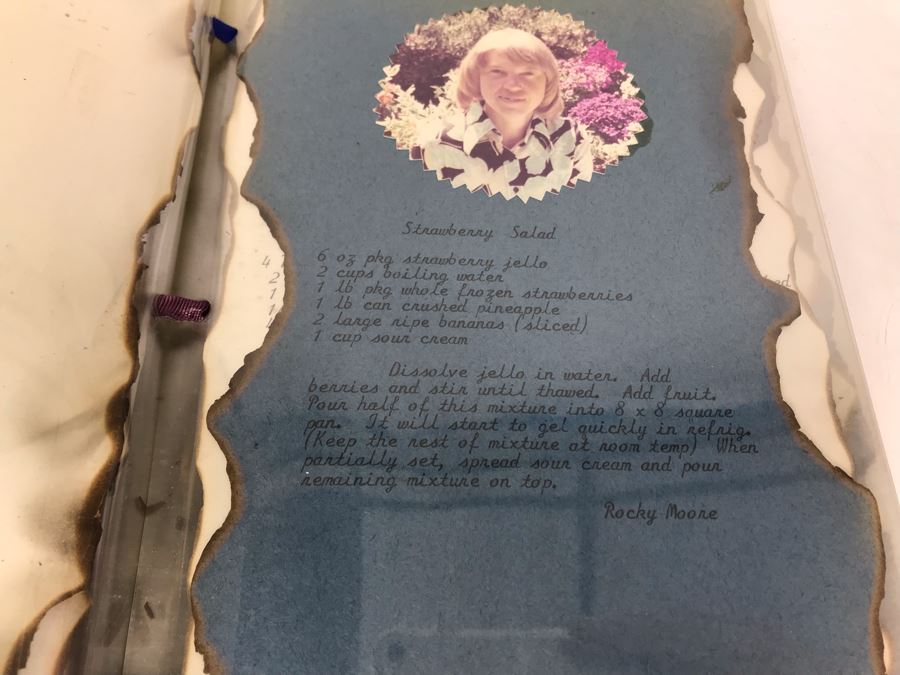 Strawberry Salad
6 oz pkg strawberry jello
2 cups boiling water
1 lb pkg whole frozen strawberries
1 lb can crushed pineapple
2 large ripe bananas (sliced)
1 cup sour cream
Dissolve jello in water. Add
berries and stir until thawed. Add fruit.
Pour half of this mixture into 8 x 8 square
pan. It will start to gel quickly in refrig.
(Keep the rest of mixture at room temp) When
partially set, spread sour cream and pour
remaining mixture on top.
Rocky Moore
4
2
1
1